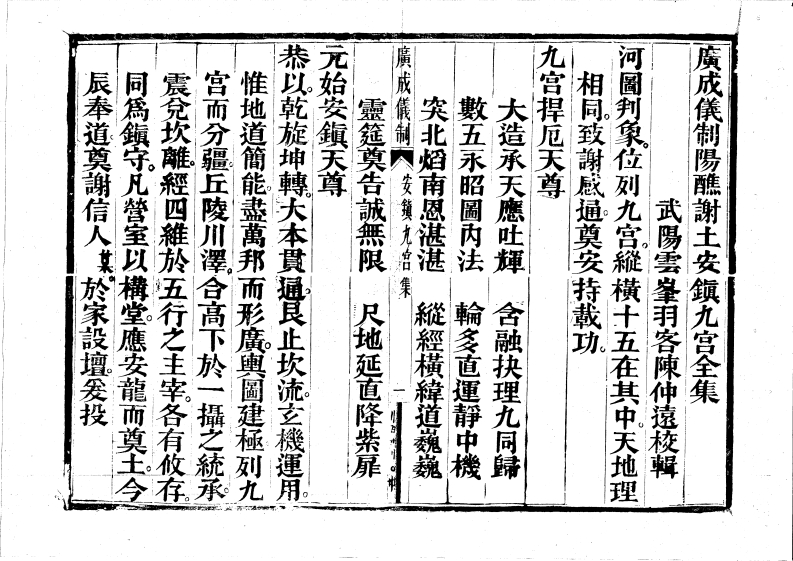 廣成儀制陽醮謝土安鎮九宮全集
武陽雲峯羽客陳仲遠校輯
河圖判象。位列九宮。縱橫十五在其中。天地理
相同。致謝感通。奠安持載功。
九宮捍厄天尊
大造承天應吐輝　含融抉理九同歸
數五永昭圖內法　輪多直運靜中機
突北熖南恩湛湛　縱經橫緯道巍巍
靈筵奠告誠無限　尺地延直降紫扉
廣成儀制　安鎮九宮集　一
元始安鎮天尊
恭以。乾旋坤轉。大本貫通。艮止坎流。玄機運用。
惟地道簡能。盡萬邦而形廣。輿圖建極。列九
宮而分疆。丘陵川澤。合高下於一攝之統承。
震兌坎離。經四維於五行之主宰。各有攸存。
同為鎮守。凡營室以構堂。應安龍而奠土。今
辰奉道奠謝信人某於家設壇。爰投